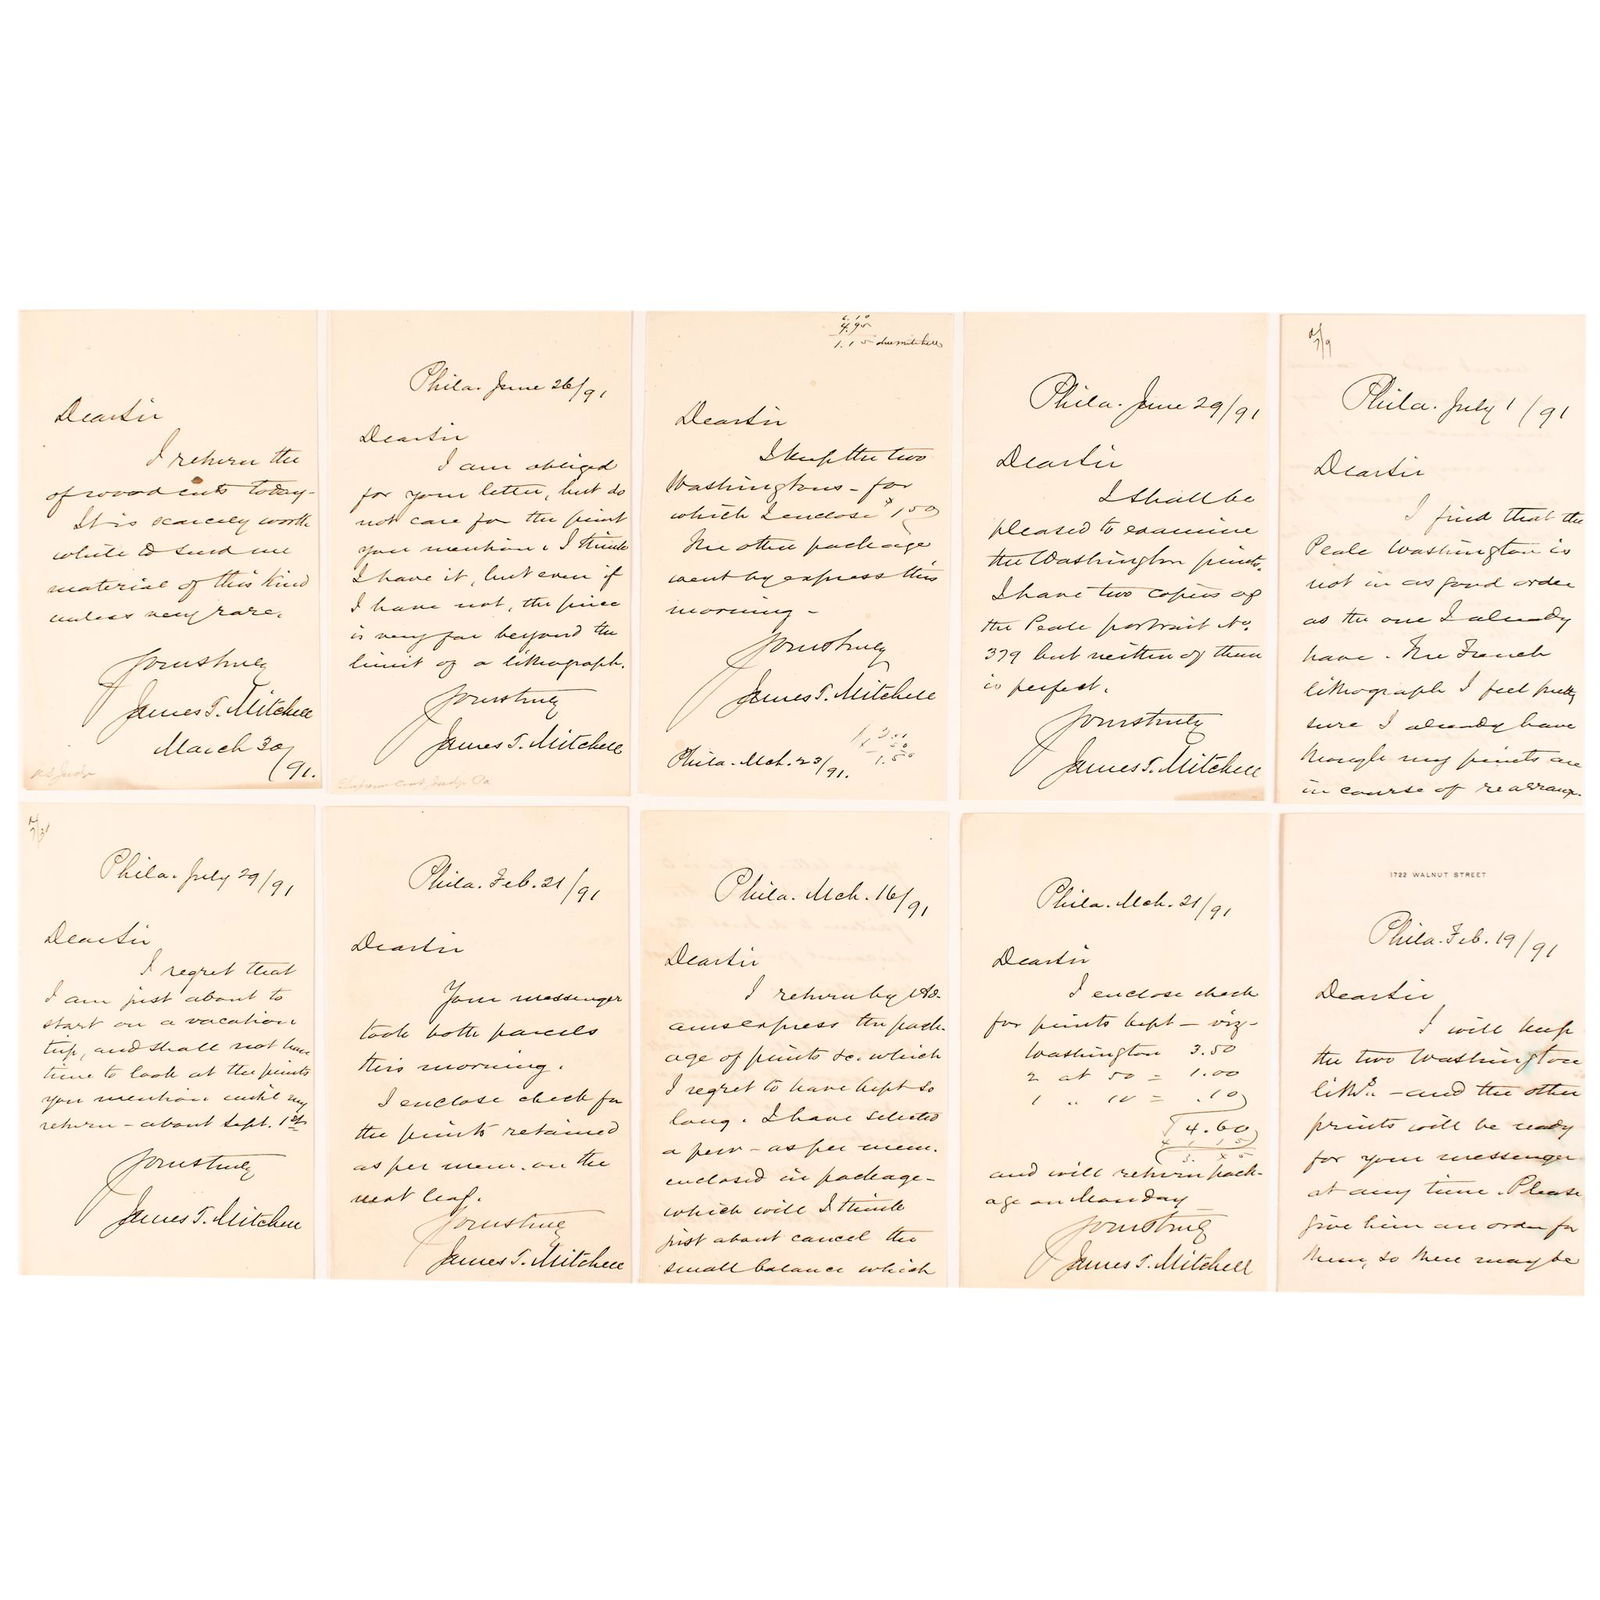 Dear Sir
I return the
of wood cuts today -
It is scarcely worth
while to send me
material of this kind
unless very rare.
Yours truly
James T. Mitchell
March 30/91.
Phila. June 26/91
Dear Sir
I am obliged
for your letter, but do
not care for the print
you mention. I think
I have it, but even if
I have not, the price
is very far beyond the
limit of a lithograph.
Yours truly
James T. Mitchell
Supreme Court Judge Pa
4.95
1.15 due mitchell
Dear Sir
I keep the two
Washingtons - for
which I enclose $1.50
The other package
went by express this
morning -
Yours truly
James T. Mitchell
Phila. Mch. 23/91.
1.50
Phila. June 29/91
Dear Sir
I shall be
pleased to examine
the Washington prints.
I have two copies of
the Peale portrait No.
379 but neither of them
is perfect.
Yours truly
James T. Mitchell
Phila. July 1/91
Dear Sir
I find that the
Peale Washington is
not in as good order
as the one I already
have. The French
lithograph I feel pretty
sure I already have
though my prints are
in course of rearrange-
Phila. July 29/91
Dear Sir
I regret that
I am just about to
start on a vacation
trip, and shall not have
time to look at the prints
you mention until my
return - about Sept. 1st
Yours truly
James T. Mitchell
Phila. Feb. 21/91
Dear Sir
Your messenger
took both parcels
this morning.
I enclose check for
the prints retained
as per mem. on the
next leaf.
Yours truly
James T. Mitchell
Phila. Mch. 16/91
Dear Sir
I return by Ad-
ams express the pack-
age of prints &c. which
I regret to have kept so
long. I have selected
a few - as per mem.
enclosed in package -
which will I think
just about cancel the
small balance which
Phila. Mch. 21/91
Dear Sir
I enclose check
for prints kept - viz -
Washington 3.50
2 at 50 = 1.00
1 " 10 = .10
4.60
and will return pack-
age on Monday
Yours truly
James T. Mitchell
1722 WALNUT STREET
Phila. Feb. 19/91
Dear Sir
I will keep
the two Washington
liths. - and the other
prints will be ready
for your messenger
at any time. Please
give him an order for
them, so there may be